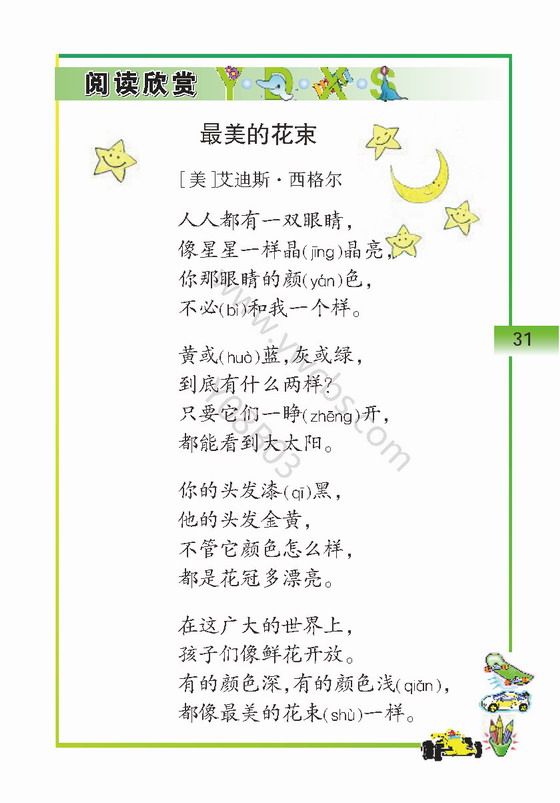 阅读欣赏 Y·D·X·S
最美的花束
[美]艾迪斯·西格尔
人人都有一双眼睛，
像星星一样晶(jīng)晶亮，
你那眼睛的颜(yán)色，
不必(bì)和我一个样。
31
黄或(huò)蓝，灰或绿，
到底有什么两样？
只要它们一睁(zhēng)开，
都能看到大太阳。
你的头发漆(qī)黑，
他的头发金黄，
不管它颜色怎么样，
都是花冠多漂亮。
在这广大的世界上，
孩子们像鲜花开放。
有的颜色深，有的颜色浅(qiǎn)，
都像最美的花束(shù)一样。
www.ywcbs.com